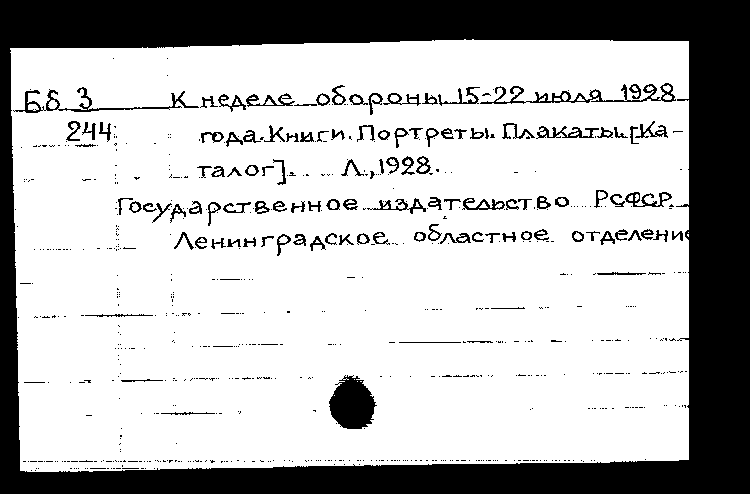 Бб 3 К неделе обороны 15-22 июля 1928
244 года. Книги. Портреты. Плакаты. [Ка-
талог]. Л., 1928.
Государственное издательство РСФСР.
Ленинградское областное отделение